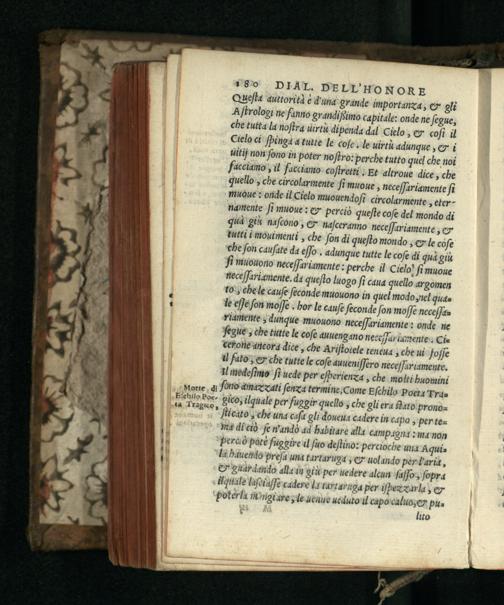 180 DIAL. DELL'HONORE
Questa auttorità è d'una grande importanza, & gli
Astrologi ne fanno grandißimo capitale: onde ne segue,
che tutta la nostra uirtù dipenda dal Cielo, & così il
Cielo ci spinga a tutte le cose. le uirtù adunque, & i
uitij non sono in poter nostro: perche tutto quel che noi
facciamo, il facciamo costretti. Et altroue dice, che
quello, che circolarmente si muoue, necessariamente si
muoue: onde il Cielo muouendosi circolarmente, eter-
namente si muoue: & perciò queste cose del mondo di
quà giù nascono, & nasceranno necessariamente, &
tutti i mouimenti, che son di questo mondo, & le cose
che son causate da esso. adunque tutte le cose di quà giù
si muouono necessariamente: perche il Cielo si muoue
necessariamente. da questo luogo si caua quello argomen
to, che le cause seconde muouono in quel modo, nel qua-
le esse son mosse. hor le cause seconde son mosse necessa-
riamente, dunque muouono necessariamente: onde ne
segue, che tutte le cose auuengano necessariamente. Ci-
cerone ancora dice, che Aristotele teneua, che ui fosse
il fato, & che tutte le cose auuenissero necessariamente.
Il medesimo si uede per esperienza, che molti huomini
sono amazzati senza termine. Come Eschilo Poeta Tra
gico, ilquale per fuggir quello, che gli era stato prono-
sticato, che una casa gli doueua cadere in capo, per te-
ma di ciò se n'andò ad habitare alla campagna: ma non
perciò potè fuggire il suo destino: percioche una Aqui
la hauendo presa una tartaruga, & uolando per l'aria,
& guardando alla in giù per uedere alcun sasso, sopra
ilquale lasciasse cadere la tartaruga per ispezzarla, &
poterla mangiare, le uenne ueduto il capo caluo, & pu-
lito
Morte di
Eschilo Poe-
ta Tragico.